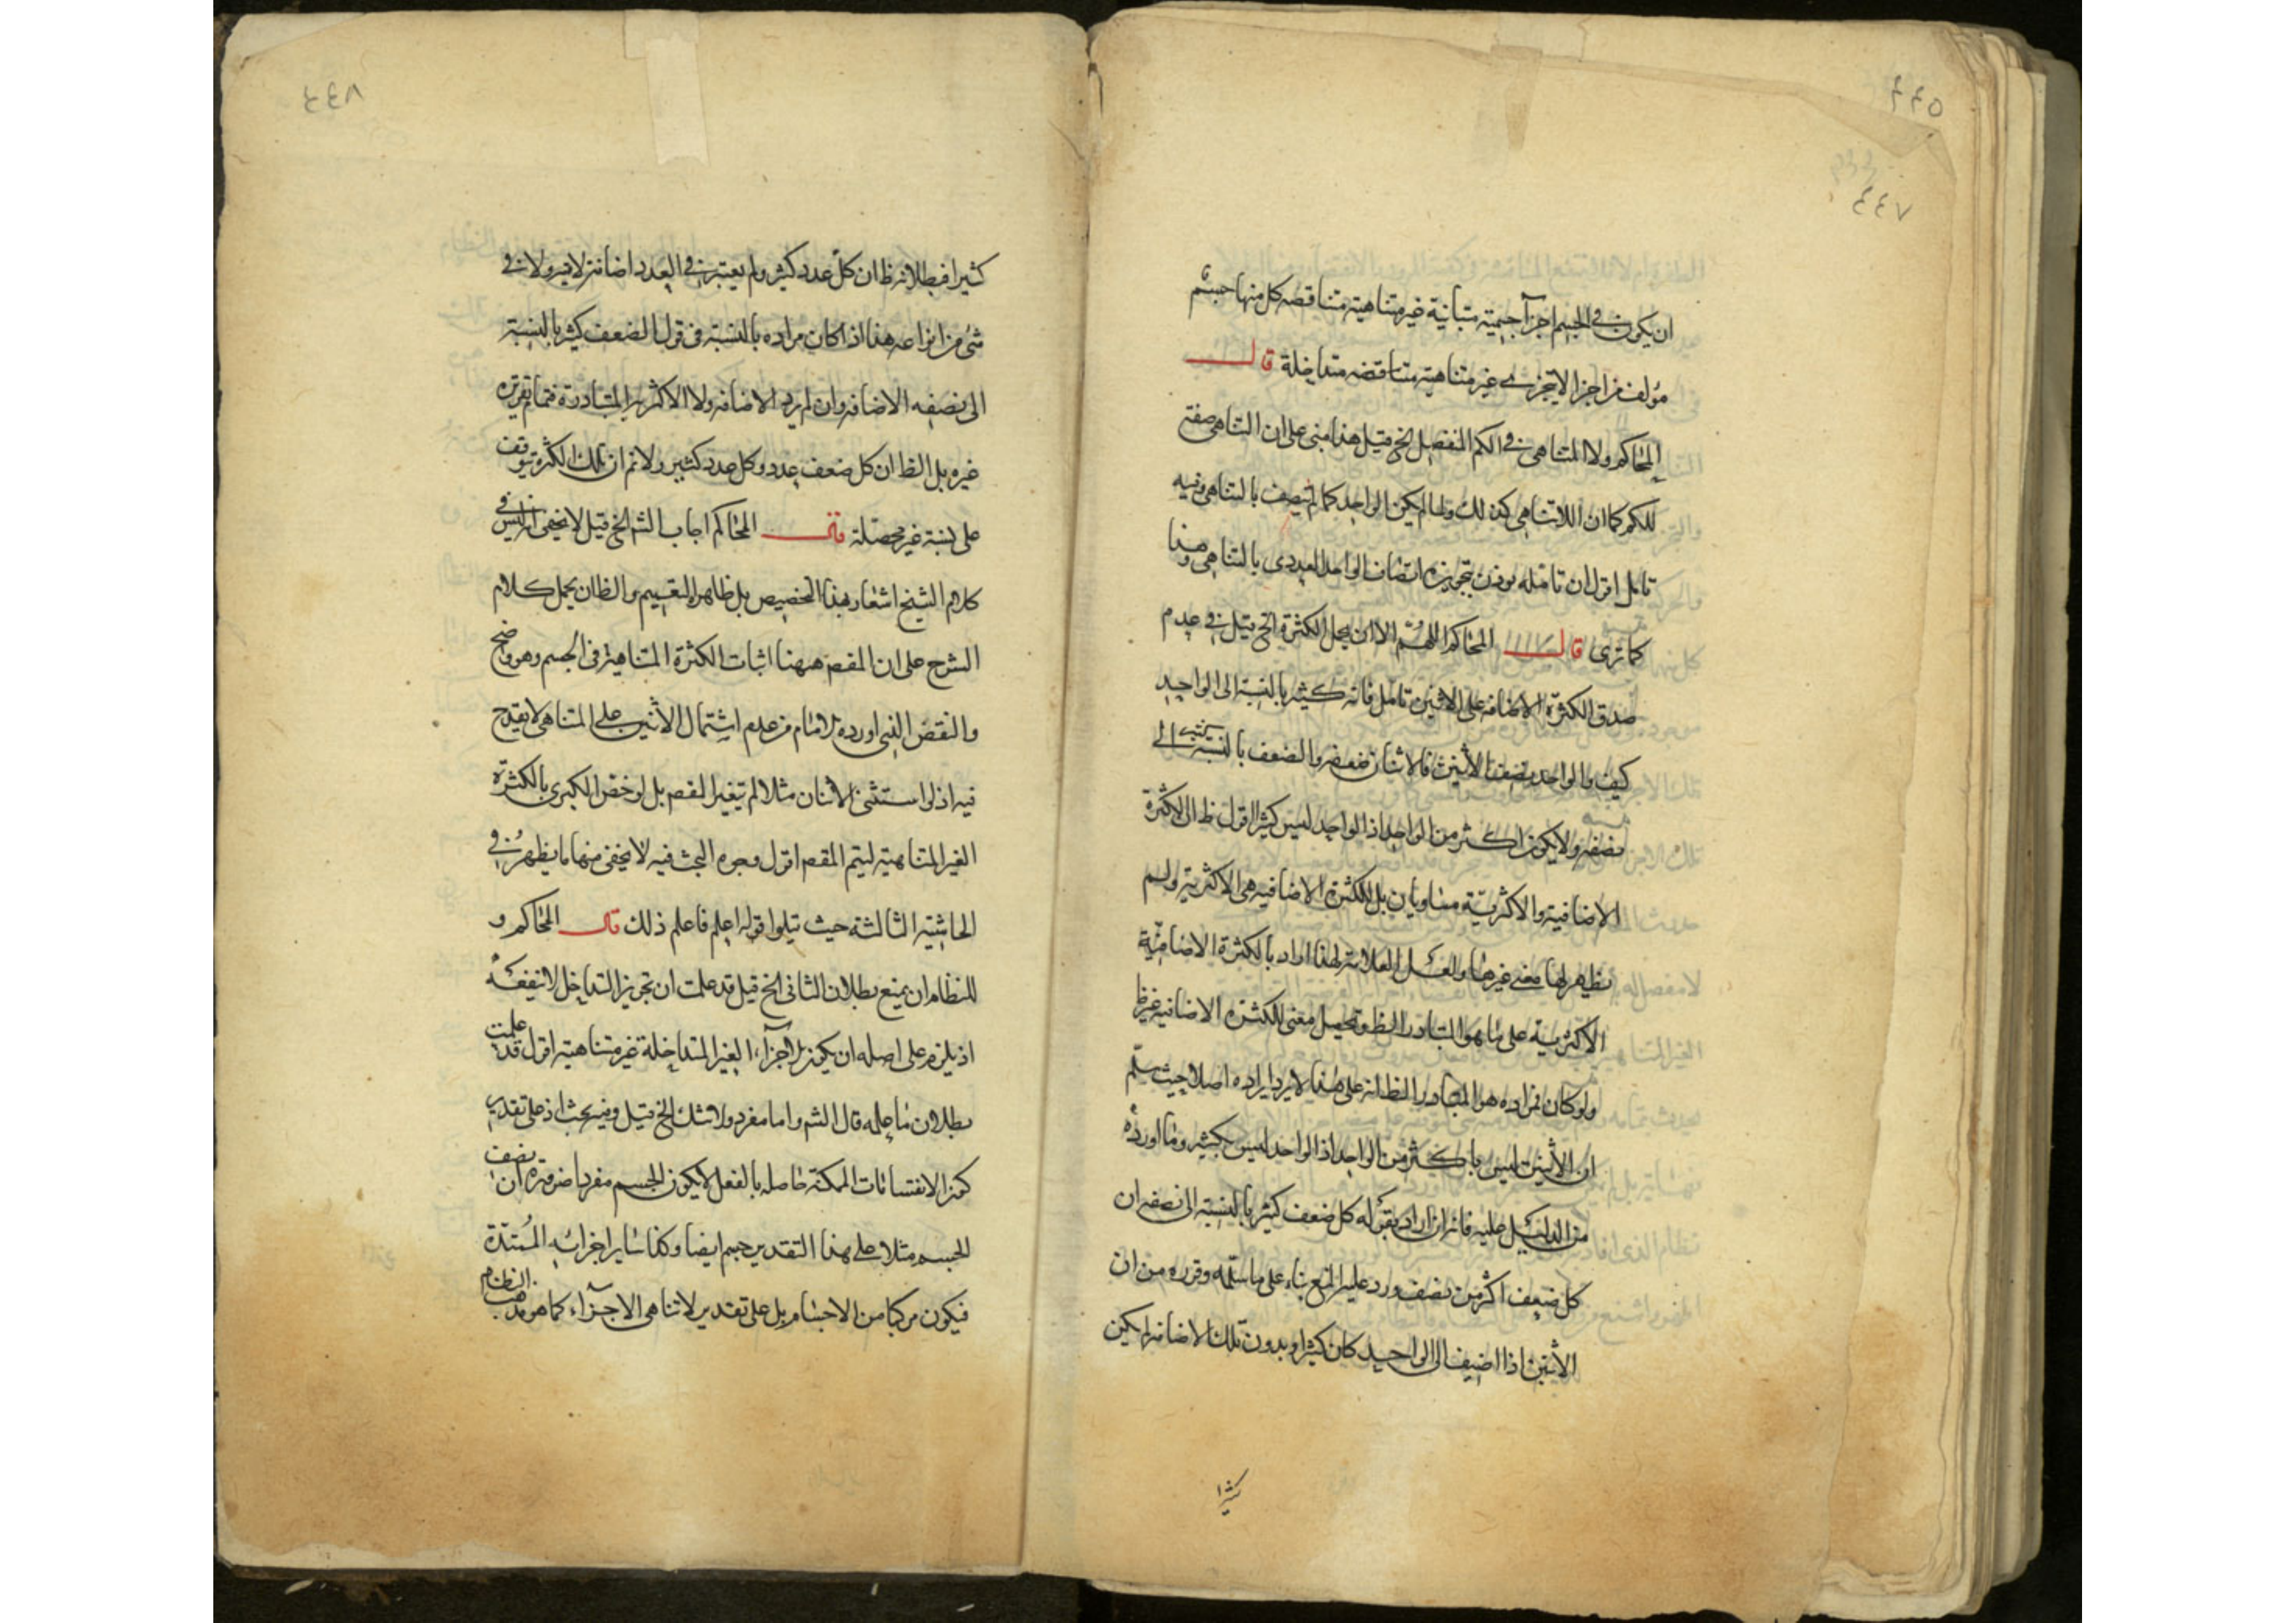 ٤٤٥
٤٤٧
ان يكون فى الجسم اجزآ جسمية متباينة غير متناهية متناقصه كل منها جسم
مؤلف من اجزا لا يتجزى غير متناهية متناقضه متداخلة قال
المحاكم ولا المتناهى فى الكم المنفصل الخ قيل هذا مبنى على ان التناهى صفة
للكم كما ان اللاتناهى كذلك ولما لم يكن الواحد كما لم يتصف بالتناهى وفيه
تامل اقول ان تامله يوذن بتجويزه اتصاف الواحد العددى بالتناهى وهذا
كما ترى قال المحاكم اللهم الا ان يحمل الكثرة الخ قيل فى عدم
صدق الكثرة الاضافه على الاثنين تامل فانه كثير بالنسبة الى الواحد
كيف والواحد نصف الأثنين فالاثنان ضعفه والضعف بالنسبة كثير الى
نصفه ولا يكون اكثر من الواحد اذ الواحد ليس كثيرا اقول ظ ان الكثرة
الاضافية والاكثرية متساويان بل الكثرة الاضافيه هى الاكثرية ولم
يظهر لها معنى غيرها ولعل العلامة لهذا اراد بالكثرة الاضافية
الاكثرية على ما هو المتبادر الظ وتحصيل معنى للكثرة الاضافية غير ظ
ولو كان مراده هو المتبادر الظ انه على هذا لا يرد ايراده اصلا حيث سلم
ان الأثنين ليس باكثر من الواحد اذ الواحد ليس بكثير وما اورده
من الدليل عليه فانه ان اراد بقوله كل ضعف كثير بالنسبة الى نصفه ان
كل ضعف اكثر من نصف ورد عليه المنع بناء على ما سلمه وقرره من ان
الأثنين اذا اضيف الى الواحد كان كثيرا وبدون تلك الاضافة لم يكن
كثيرا
٤٤٨
كثيرا فبطلانه ظ ان كل عدد كثير ولم يعتبر فى العدد اضافة لا فيه ولا فى
شئ من انواعه هذا اذا كان مراده بالنسبة فى قول الضعف كثير بالنسبة
الى نصفه الاضافه وان لم يرد الاضافه ولا الاكثرية المتبادرة فتم تقريره
غيره بل الظ ان كل ضعف عدد وكل عدد كثير ولا نم ان تلك الكثرة تتوقف
على نسبة غير محصلة قال المحاكم اجاب الشم الخ قيل لا يخفى انه ليس فى
كلام الشيخ اشعار بهذا التخصيص بل ظاهره التعميم والظ ان يحمل كلام
الشرح على ان المقصم ههنا اثبات الكثرة المتناهية فى الجسم وهو واضح
والنقض الذى اورده الامام من عدم اشتمال الأثنين على المتناهى لا يقدح
فيه اذ لو استثنى الأثنان مثلا لم يتغير المقصم بل لو خصص الكبرى بالكثرة
الغير المتناهية ليتم المقصم اقول وجوه البحث فيه لا يخفى منها ما يظهر فى
الحاشيه الثالثة حيث تيلوا قوله اعلم فاعلم ذلك قال المحاكم و
للنظام ان يمنع بطلان الثانى الخ قيل قد علمت ان تجويز التداخل لا ينفعه
اذ يلزم على اصله ان يكون الاجزآء الغير المتداخلة غير متناهية اقول قد علمت
بطلان ما علمه قال الشم واما مفرد ولا شك الخ قيل وفيه بحث اذ على تقدير
كون الانقسامات الممكنة حاصله بالفعل لا يكون الجسم مفردا ضرورة ان نصف
الجسم مثلا على هذا التقدير جسم ايضا وكذا ساير اجزائه المُمتدّة
فيكون مركبا من الاجسام بل على تقدير لا تناهى الاجزآء كما هو مذهب النظام